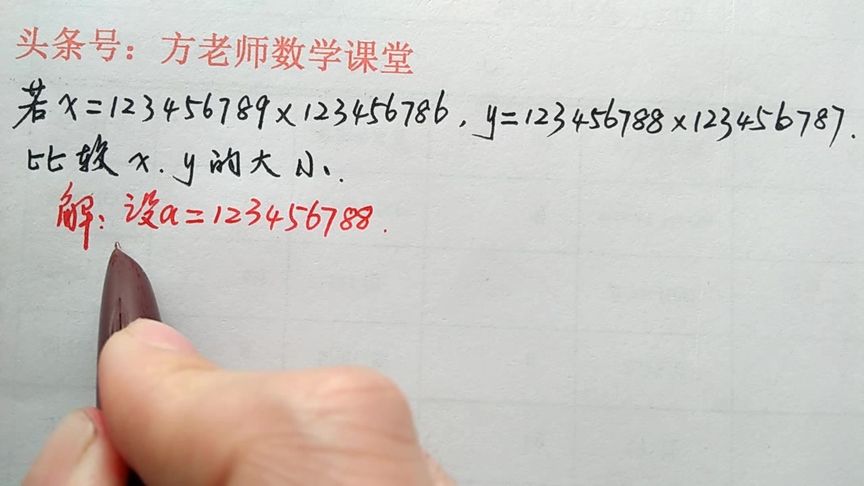 头条号：方老师数学课堂
若x=123456789×123456786，y=123456788×123456787.
比较x.y的大小.
解：设a=123456788.